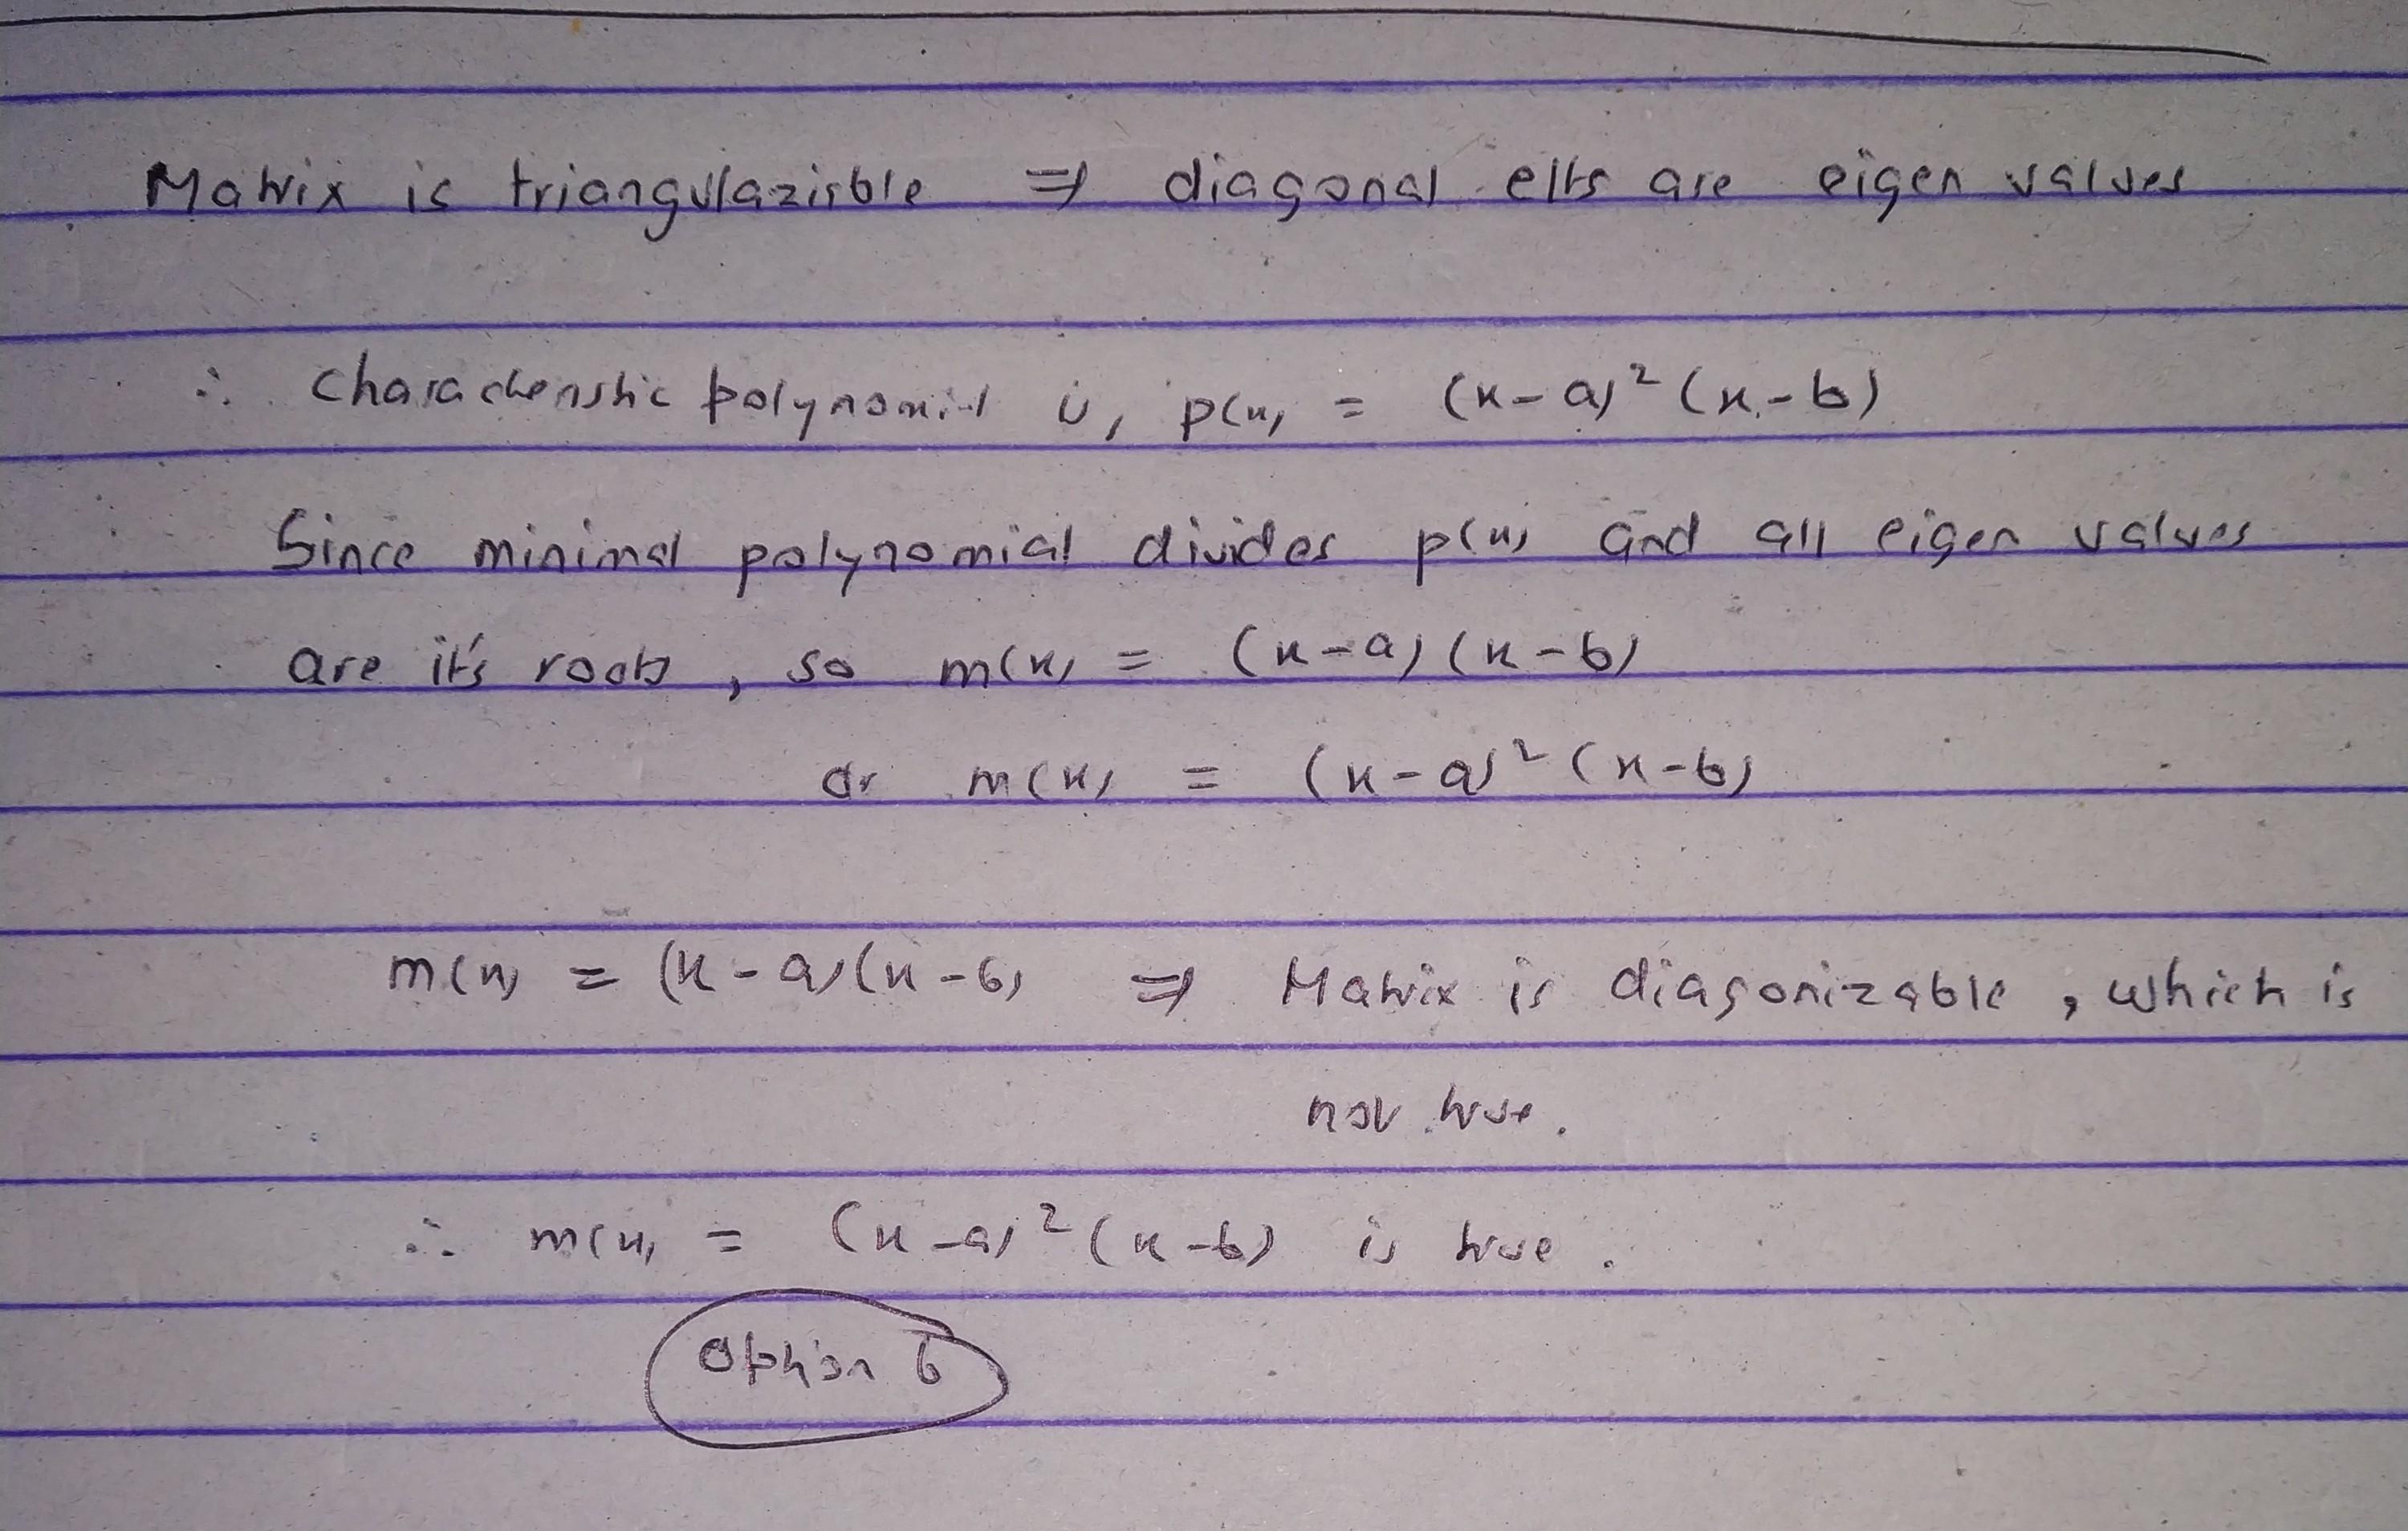 Matrix is triangulazisble ⇒ diagonal elts are eigen values
∴ characterstic polynomial is, p(x) = (x-a)² (x-b)
Since minimal polynomial divides p(x) and all eigen values
are it's roots, so m(x) = (x-a)(x-b)
or m(x) = (x-a)² (x-b)
m(x) = (x-a)(x-b) ⇒ Matrix is diagonizable, which is
not true.
∴ m(x) = (x-a)² (x-b) is true.
Option b